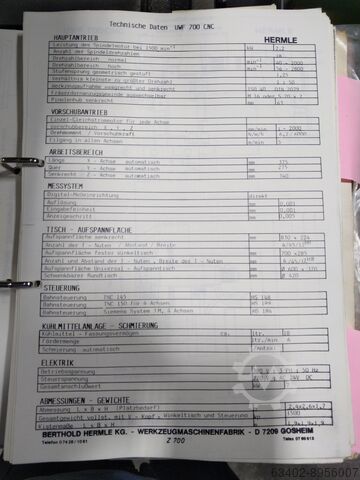 Technische Daten UWF 700 CNC
HERMLE
HAUPTANTRIEB
Leistung der Spindelmotor bei 1500 min⁻¹ kW 2,2
Anzahl der Spindeldrehzahlen 18
Drehzahlbereich normal min⁻¹ 40 - 2000
Drehzahlbereich hoch min⁻¹ 56 - 2800
Stufensprung geometrisch gestuft 1,25
kleinster zu größter Drehzahl 1 : 50
Werkzeugaufnahme waagrecht und senkrecht ISO 40 DIN 2079
Fräserdornanzugsgewinde auswechselbar
Pinolenhub senkrecht mm 63
VORSCHUBANTRIEB
Einzel-Gleichstrommotor für jede Achse
Vorschubbereich X , Y , Z mm/min 1 - 2000
Drehmoment / Vorschubkraft
Eilgang in allen Achsen mm/min
ARBEITSBEREICH
Längs X - Achse automatisch mm 375
Quer Y - Achse automatisch mm 275
Senkrecht Z - Achse automatisch mm 340
MESSYSTEM
Digital-Meßeinrichtung direkt
Auflösung mm 0,001
Eingabefeinheit mm 0,001
Anzeigeschritt mm 0,005
TISCH - AUFSPANNFLÄCHE
Aufspannfläche senkrecht mm 830 x 224
Anzahl der T - Nuten / Abstand / Breite
Aufspannfläche festes Winkeltisch mm 700 x 285
Anzahl und Abstand der T - Nuten , Breite des T - Nuten
Aufspannfläche Universal - Aufspanntisch mm
Schwenkbares Rundtisch mm Ø 420
STEUERUNG
Bahnsteuerung TNC 145 HS 148
Bahnsteuerung TNC 150 für 4 Achsen HS 149
Bahnsteuerung Siemens System 3 M, 4 Achsen HS 184
KÜHLMITTELANLAGE - SCHMIERUNG
Kühlmittel - Fassungsvermögen ca. ltr. 28
Fördermenge ltr./min
Schmierung automatisch
ELEKTRIK
Betriebsspannung 50 Hz
Steuerspannung 24V DC
Gesamtanschlußwert
ABMESSUNGEN - GEWICHTE
Abmessung L x B x H (Platzbedarf) m 2,4x2,6x1,7
Gesamtgewicht vollst. mit V - Kopf , Winkeltisch und Steuerung kp 1500
Kistenmaße L x B x H m 1,9x1,9x1,9
BERTHOLD HERMLE KG. - WERKZEUGMASCHINENFABRIK - D 7209 GOSHEIM
Telefon 07426/1041
Z 700
63402-8956007